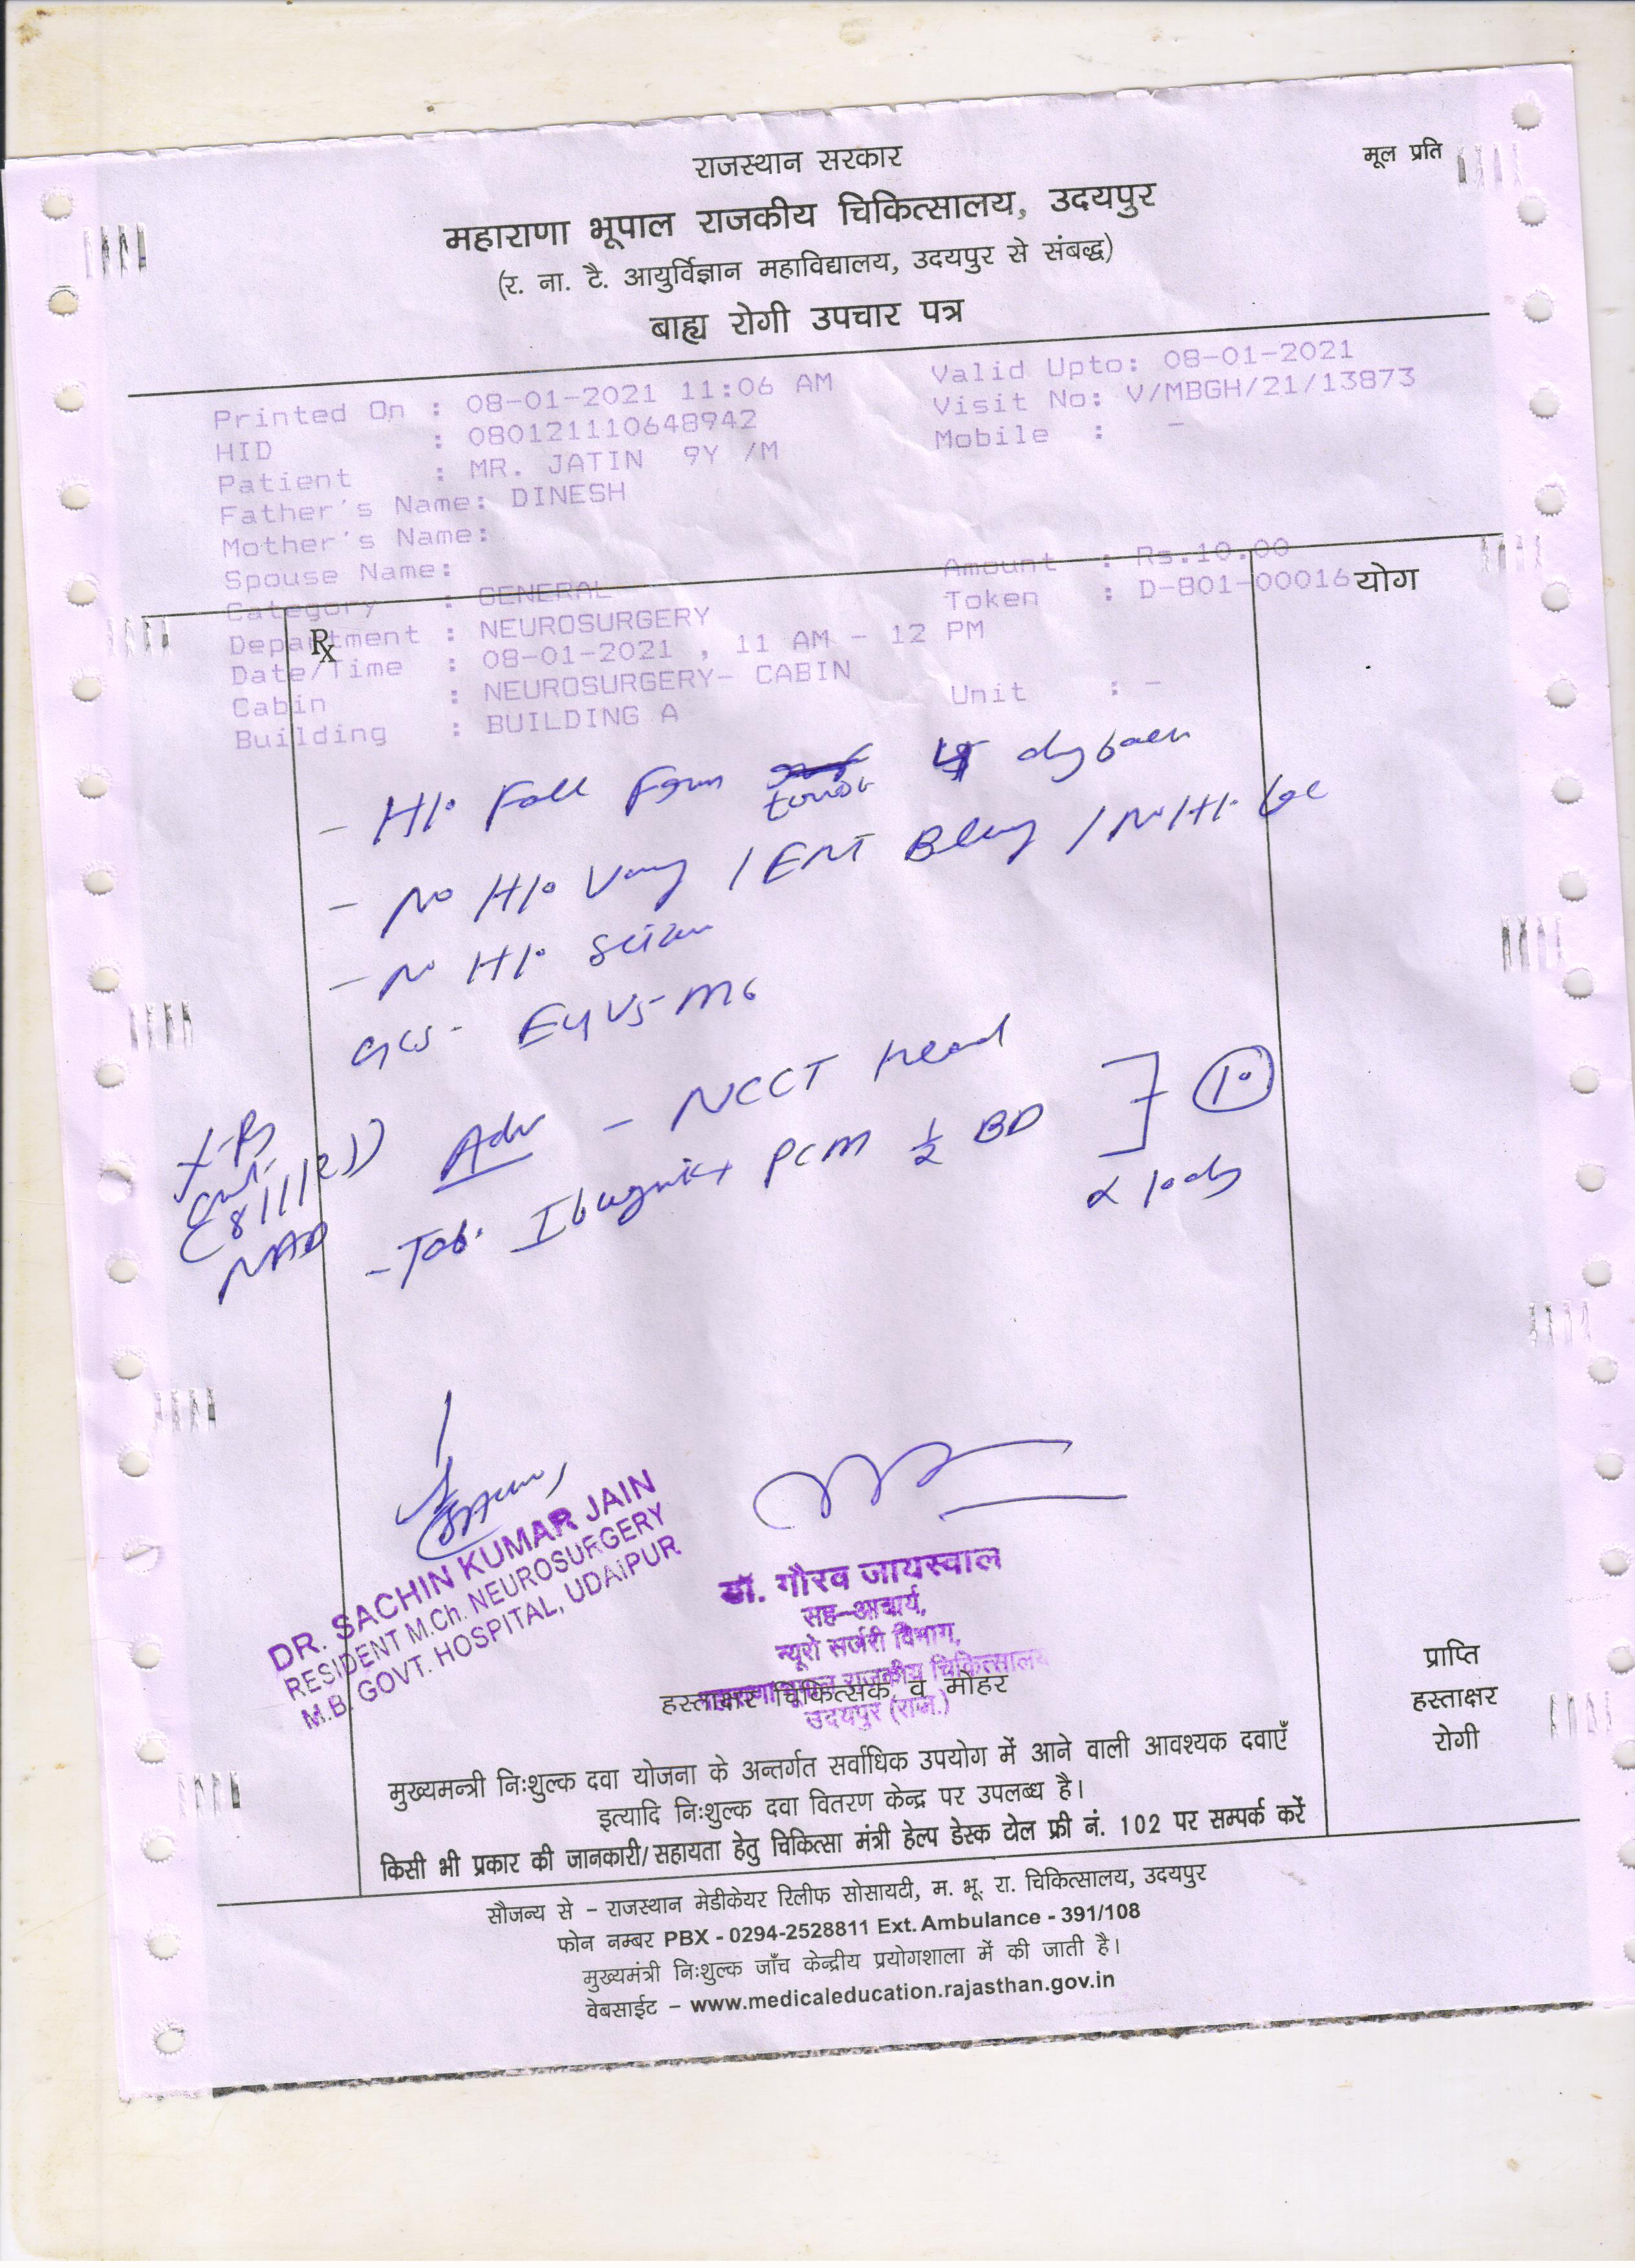 मूल प्रति
राजस्थान सरकार
महाराणा भूपाल राजकीय चिकित्सालय, उदयपुर
(र. ना. टै. आयुर्विज्ञान महाविद्यालय, उदयपुर से संबद्ध)
बाह्य रोगी उपचार पत्र
Printed On : 08-01-2021 11:06 AM Valid Upto: 08-01-2021
HID : 080121110648942 Visit No: V/MBGH/21/13873
Patient : MR. JATIN 9Y /M Mobile : -
Father's Name: DINESH
Mother's Name:
Spouse Name:
Category : GENERAL Amount : Rs.10.00
Department : NEUROSURGERY Token : D-801-00016
योग
Date/Time : 08-01-2021 , 11 AM - 12 PM
Cabin : NEUROSURGERY- CABIN
Building : BUILDING A Unit : -
℞
- H/o Fall From day back
- No H/o / ENT / No H/o
- No H/o
GCS - E4V5M6
Adv - NCCT Head
- Tab. PCM ½ BD
(8/1/21)
NAD
DR. SACHIN KUMAR JAIN
RESIDENT M.Ch. NEUROSURGERY
M.B. GOVT. HOSPITAL, UDAIPUR
डॉ. गौरव जायसवाल
सह-आचार्य,
न्यूरो सर्जरी विभाग,
महाराणा भूपाल राजकीय चिकित्सालय
उदयपुर (राज.)
हस्ताक्षर चिकित्सक व मोहर
प्राप्ति
हस्ताक्षर
रोगी
मुख्यमन्त्री निःशुल्क दवा योजना के अन्तर्गत सर्वाधिक उपयोग में आने वाली आवश्यक दवाएँ
इत्यादि निःशुल्क दवा वितरण केन्द्र पर उपलब्ध है।
किसी भी प्रकार की जानकारी/सहायता हेतु चिकित्सा मंत्री हेल्प डेस्क टोल फ्री नं. 102 पर सम्पर्क करें
सौजन्य से - राजस्थान मेडीकेयर रिलीफ सोसायटी, म. भू. रा. चिकित्सालय, उदयपुर
फोन नम्बर PBX - 0294-2528811 Ext. Ambulance - 391/108
मुख्यमंत्री निःशुल्क जाँच केन्द्रीय प्रयोगशाला में की जाती है।
वेबसाईट - www.medicaleducation.rajasthan.gov.in